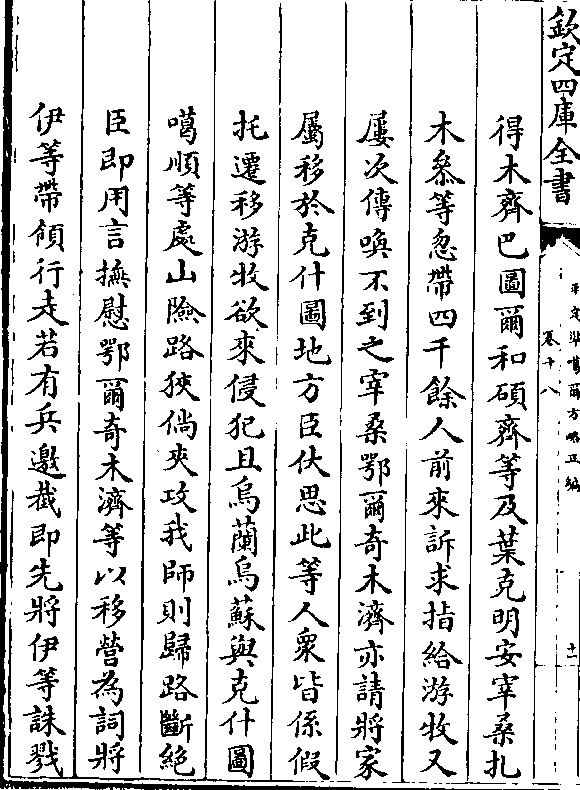 欽定四庫全書
平定準噶爾方略正編
卷十八
十一
得木齊巴圖爾和碩齊等及葉克明安宰桑扎
木叅等忽帶四千餘人前來訴求指給游牧又
屢次傳喚不到之宰桑鄂爾奇木濟亦請將家
屬移於克什圖地方臣伏思此等人衆皆係假
托遷移游牧欲來侵犯且烏蘭烏蘇與克什圖
噶順等處山險路狹倘夾攻我師則歸路斷絶
臣即用言撫慰鄂爾奇木濟等以移營為詞將
伊等帶領行走若有兵邀截即先將伊等誅戮